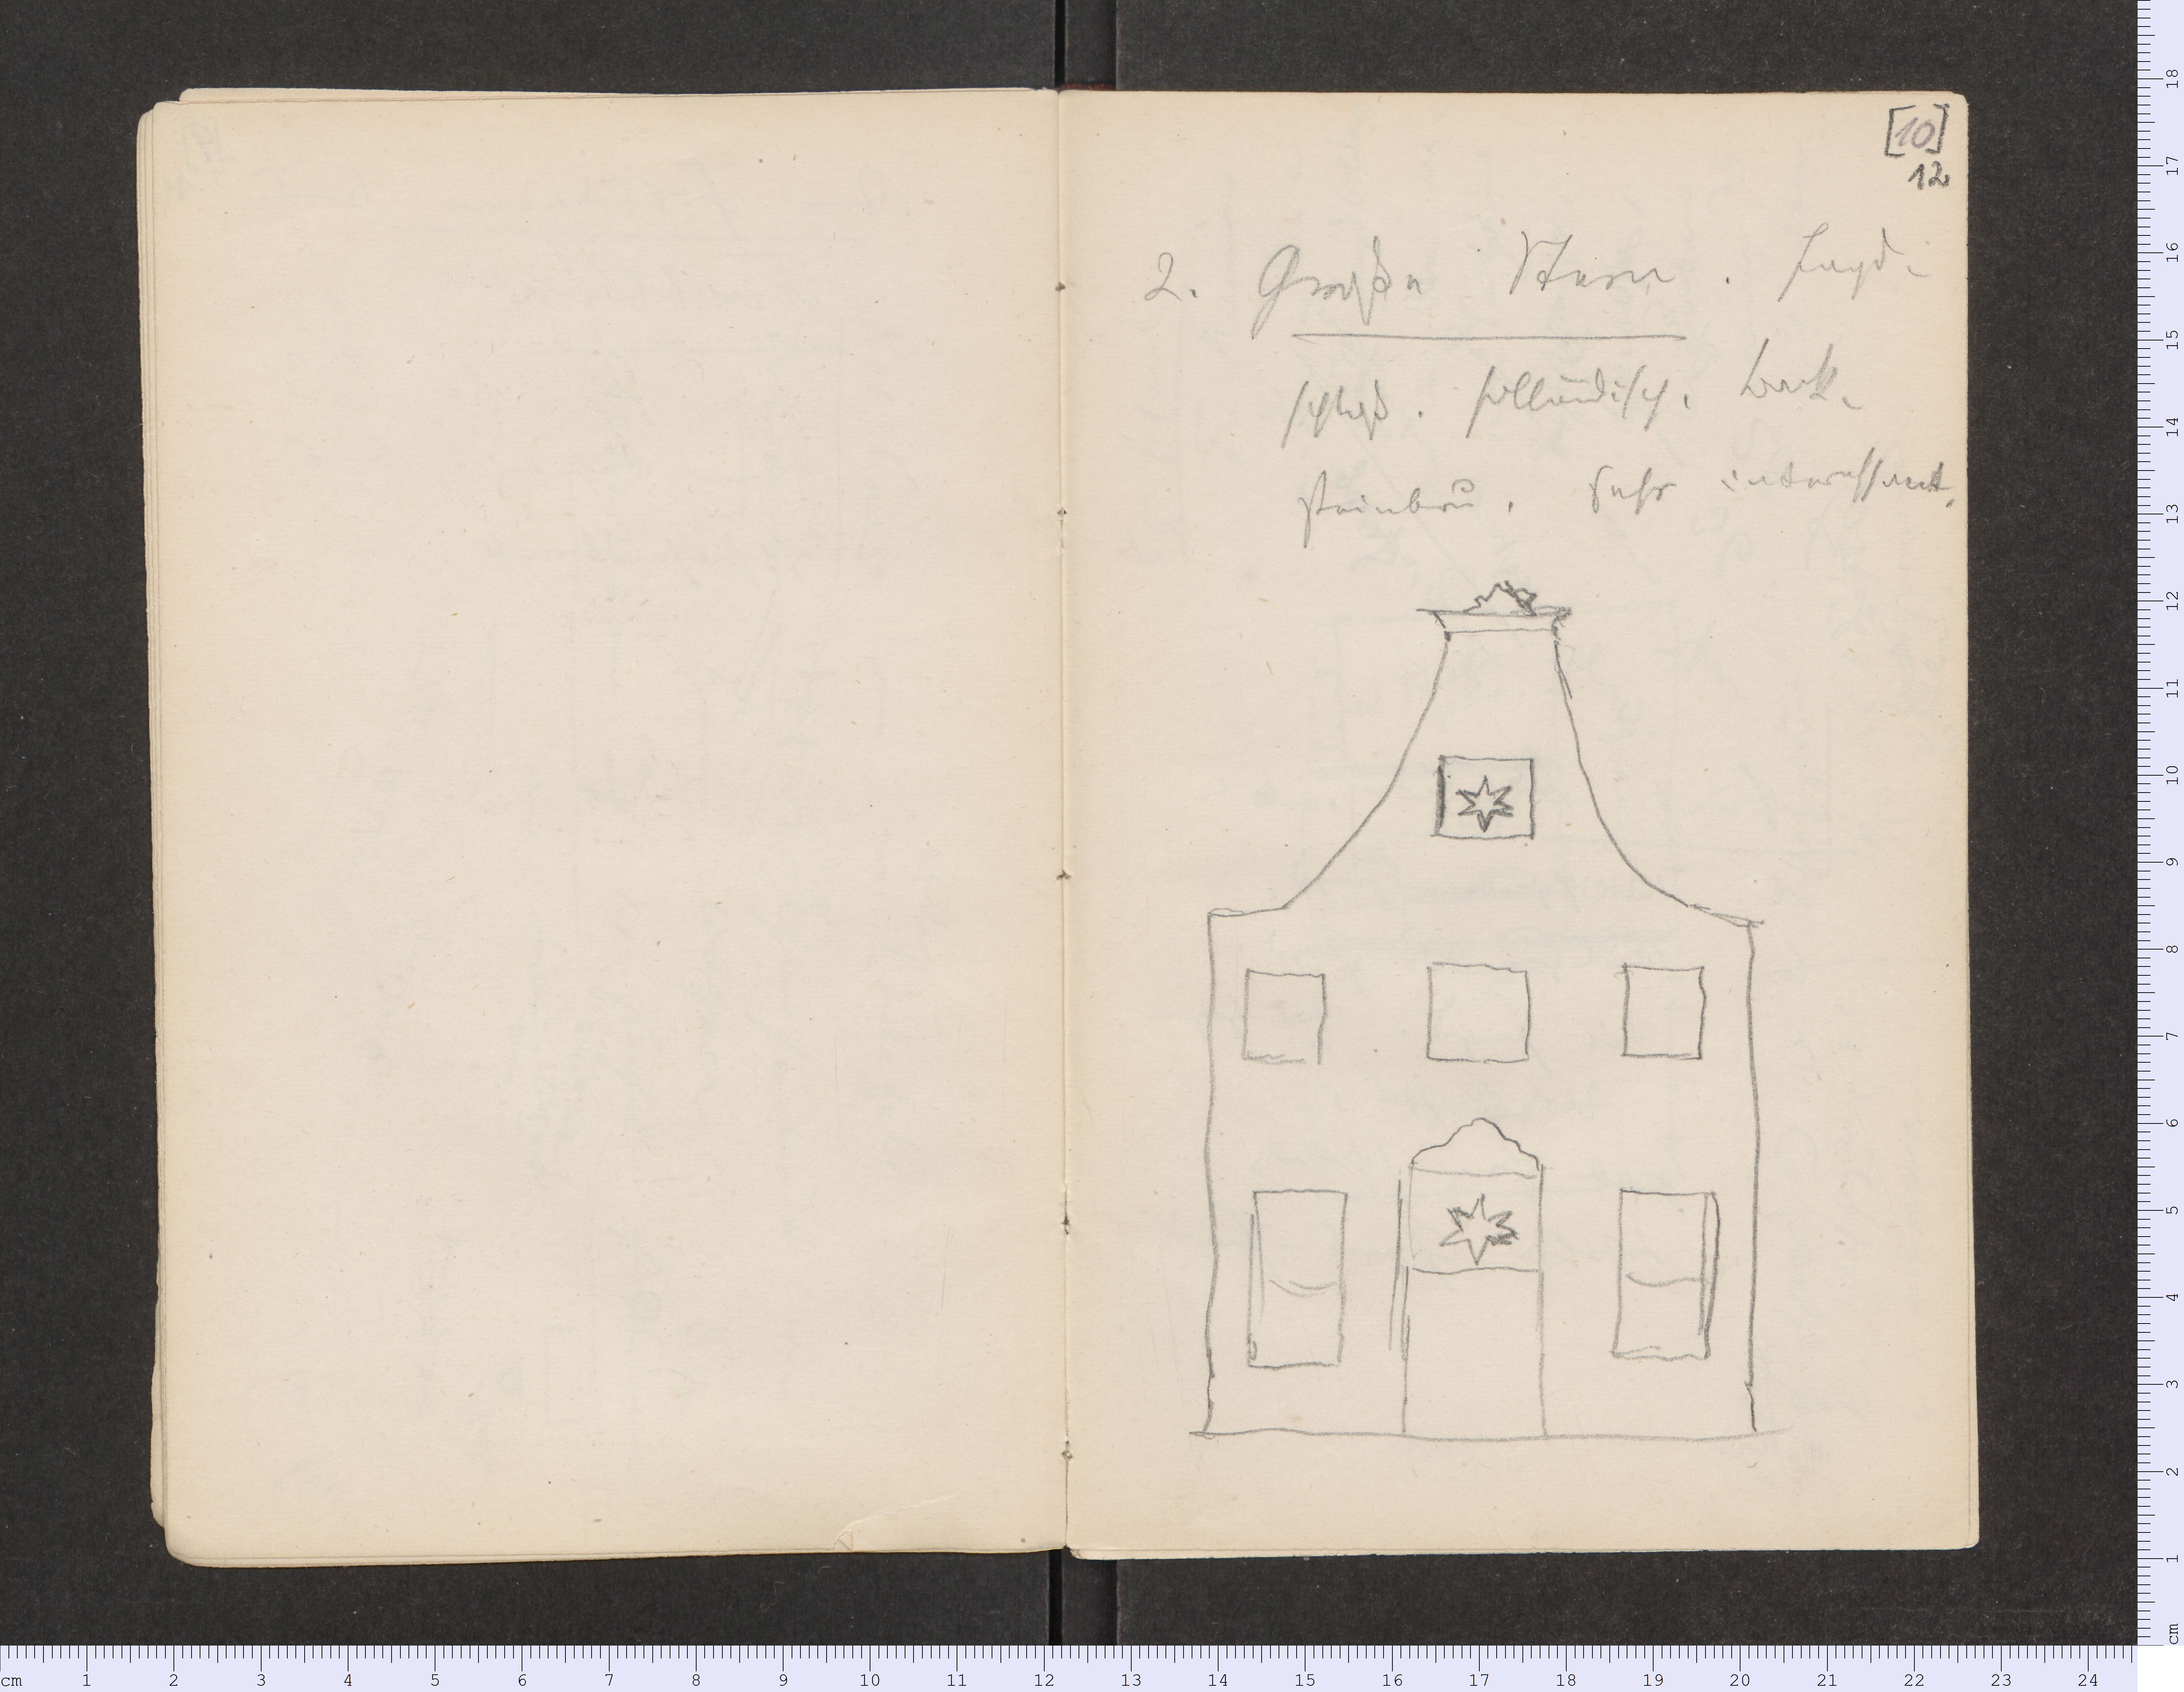 [10]
12
2. Großer Stern. Jagd-
schloß. holländisch. Back-
steinbau. Sehr interessant.
cm 1 2 3 4 5 6 7 8 9 10 11 12 13 14 15 16 17 18 19 20 21 22 23 24
18
17
16
15
14
13
12
11
10
9
8
7
6
5
4
3
2
1
cm